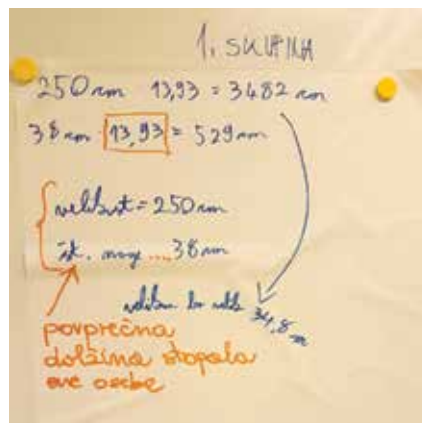 1. SKUPINA
250 cm 13,93 = 3482 cm
38 cm · 13,93 = 529 cm
velikost = 250 cm
št. noge .... 38 cm
34,8 m
povprečna
dolžina stopala
ene osebe